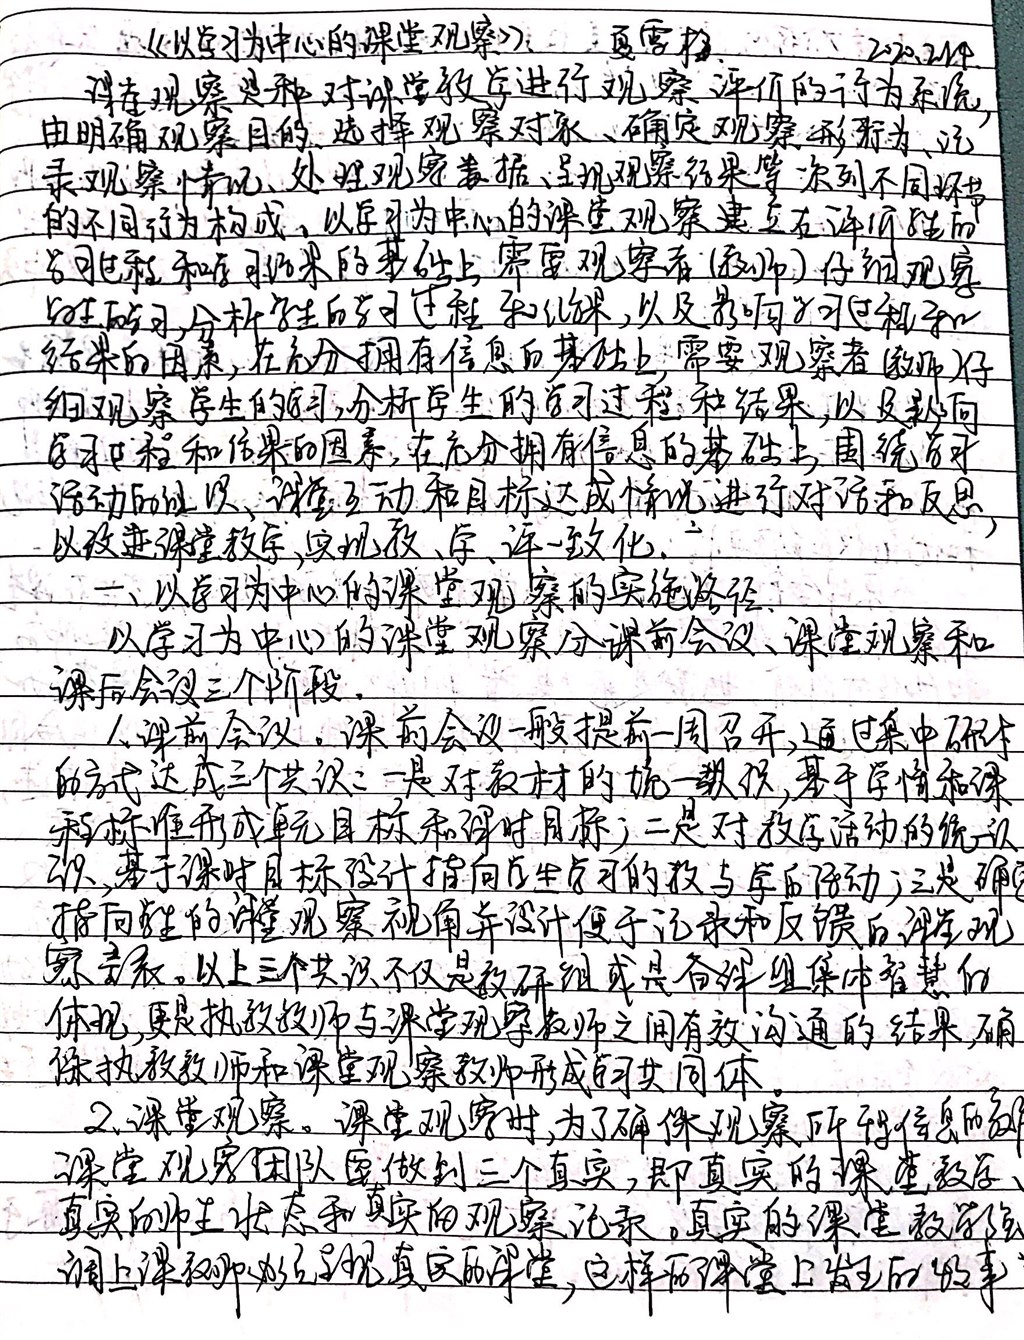 《以学习为中心的课堂观察》 夏雪梅 2020.2.14
课堂观察是种对课堂教学进行观察评价的行为系统,
由明确观察目的、选择观察对象、确定观察行为、记
录观察情况、处理观察数据、呈现观察结果等次列不同环节
的不同行为构成。以学习为中心的课堂观察建立在评价学生的
学习过程和学习结果的基础上,需要观察者(教师)仔细观察
学生的学习,分析学生的学习过程和结果,以及影响学习过程和
结果的因素,在充分拥有信息的基础上,需要观察者(教师)仔
细观察学生的学习,分析学生的学习过程和结果,以及影响
学习过程和结果的因素,在充分拥有信息的基础上,围绕学习
活动的组织、课堂互动和目标达成情况进行对话和反思,
以改进课堂教学,实现教、学、评一致化.
一、以学习为中心的课堂观察的实施路径.
以学习为中心的课堂观察分课前会议、课堂观察和
课后会议三个阶段.
1、课前会议。课前会议一般提前一周召开,通过集中研讨
的方式达成三个共识:一是对教材的统一认识,基于学情和课
程标准形成单元目标和课时目标;二是对教学活动的统一认
识,基于课时目标设计指向学生学习的教与学的活动;三是确定
指向学生的课堂观察视角并设计便于记录和反馈的课堂观
察量表。以上三个共识不仅是教研组或是备课组集体智慧的
体现,更是执教教师与课堂观察教师之间有效沟通的结果,确
保执教教师和课堂观察教师形成学习共同体。
2、课堂观察。课堂观察时,为了确保观察所得信息的效
课堂观察团队要做到三个真实,即真实的课堂教学、
真实的师生状态和真实的观察记录。真实的课堂教学强
调上课教师必须呈现真实的课堂,这样的课堂上发生的故事